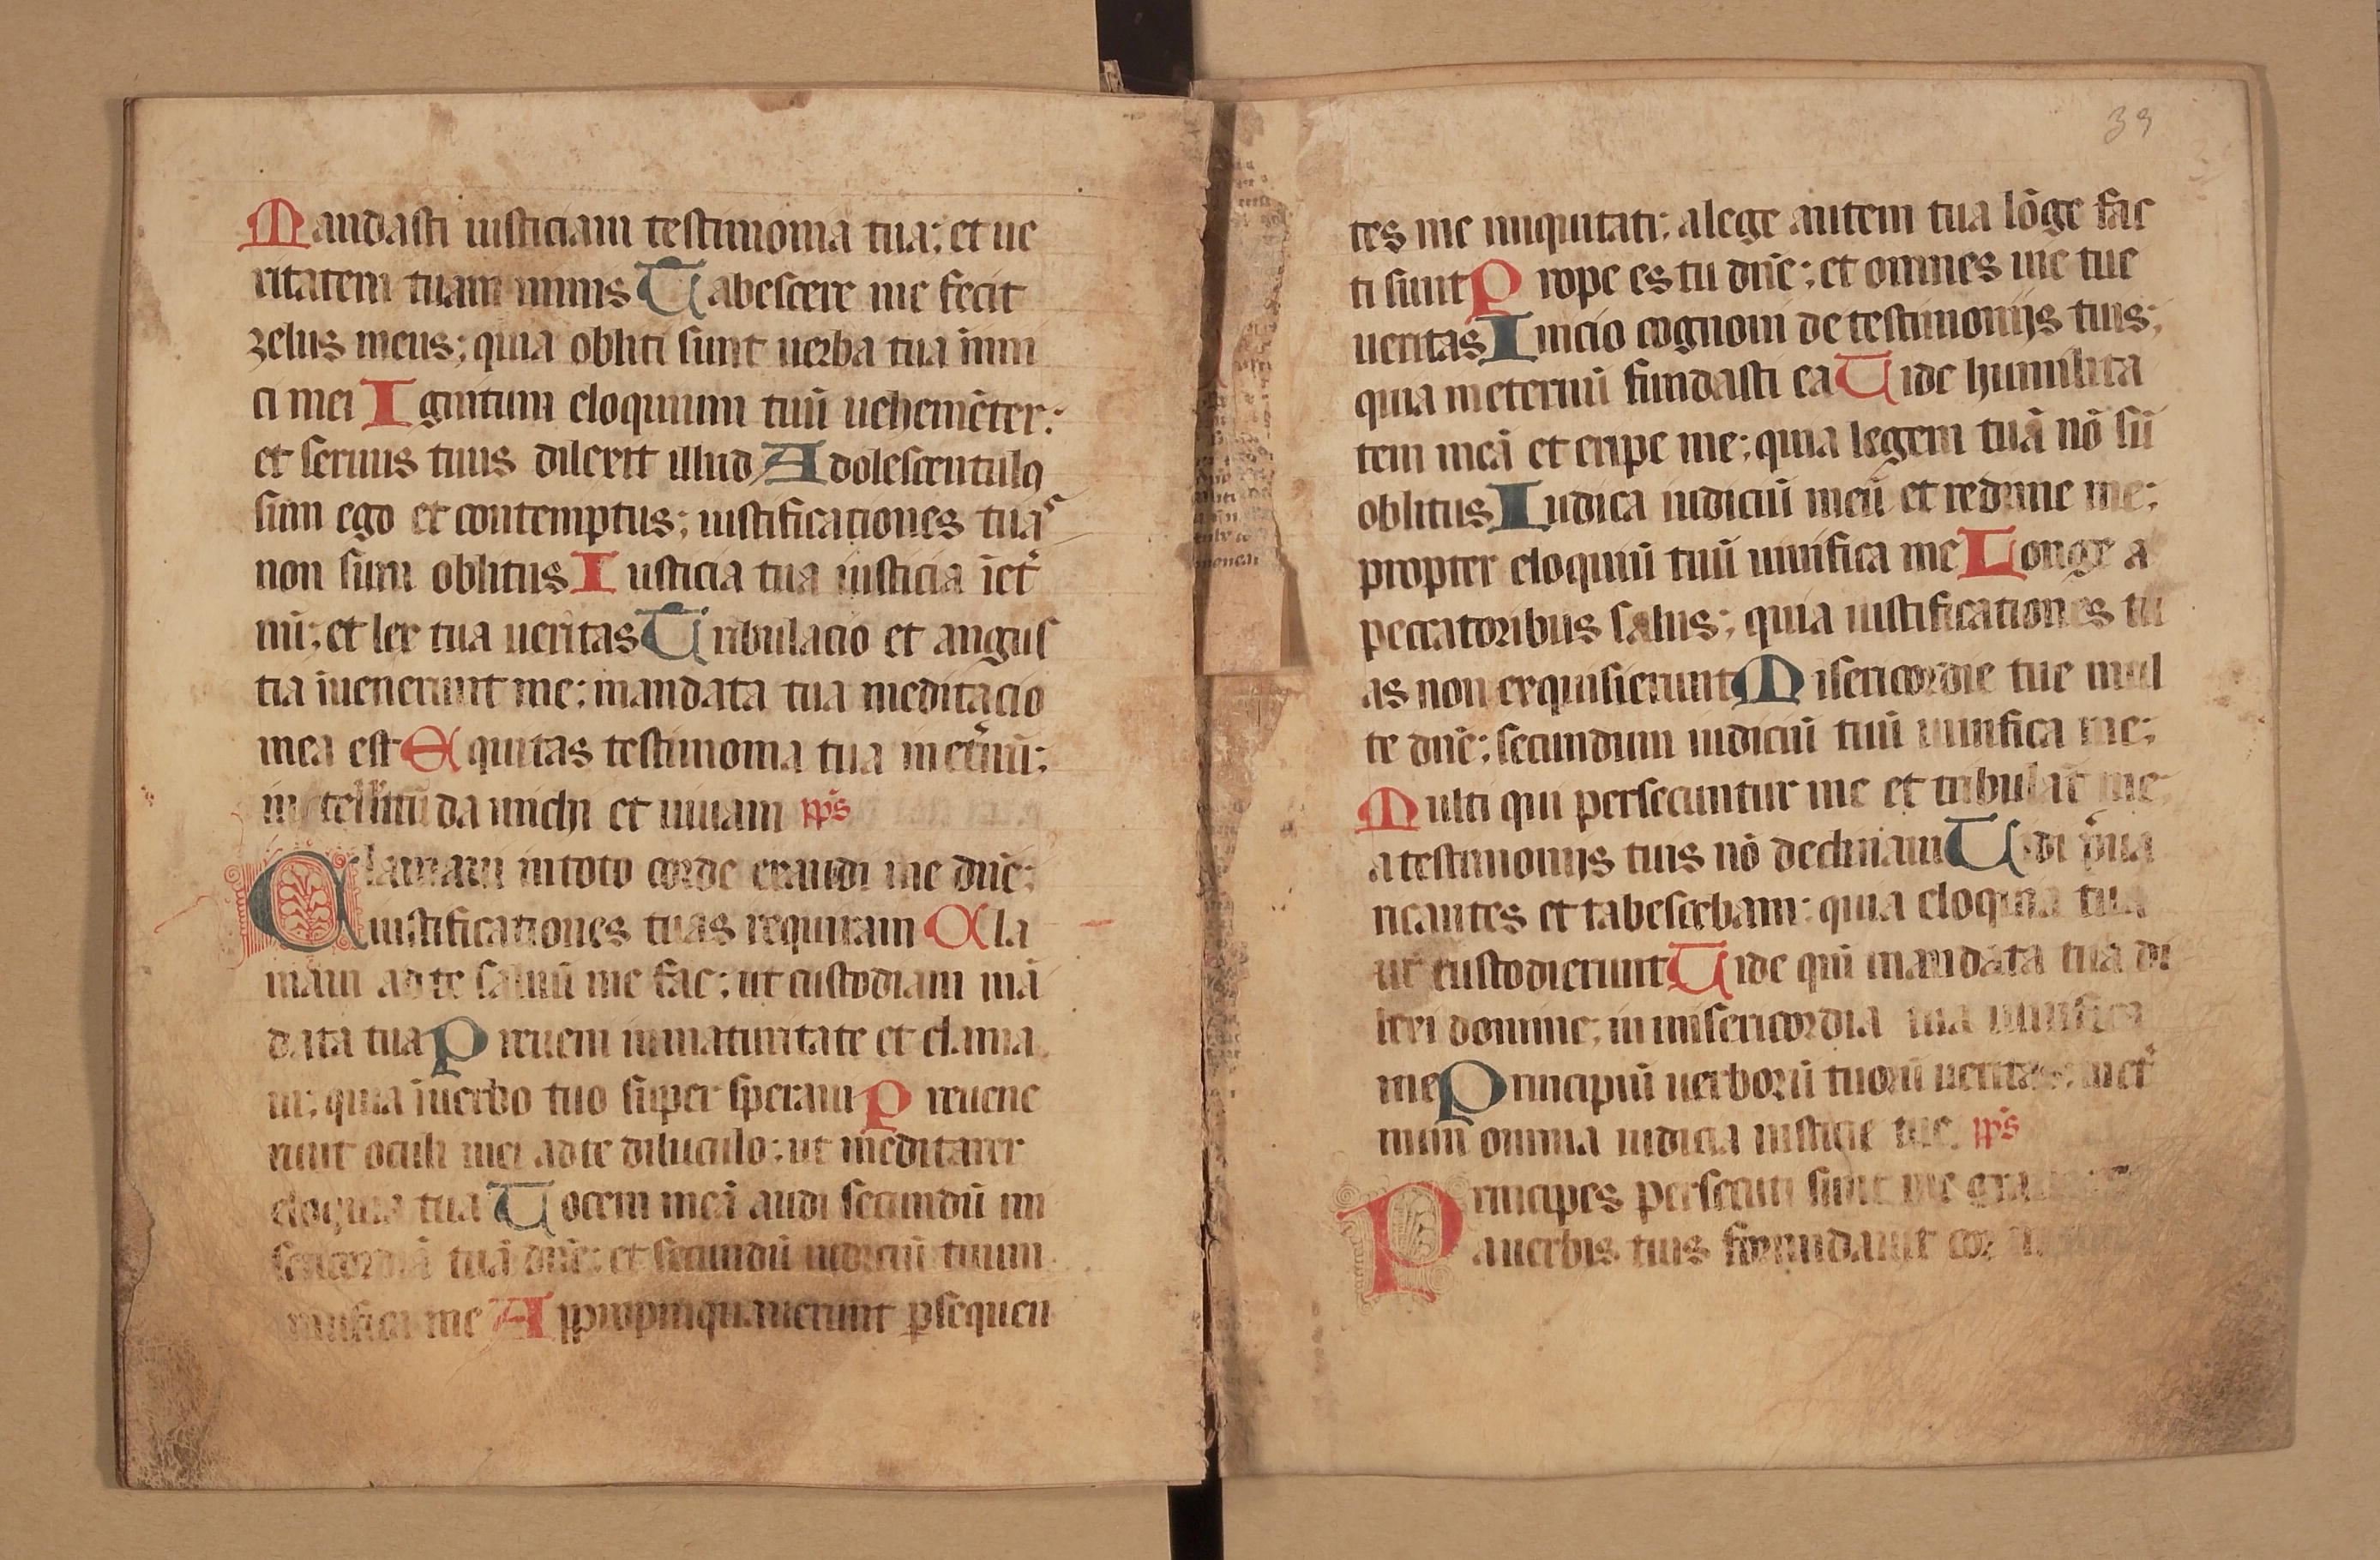 Mandasti iusticiam testimonia tua; et ue
ritatem tuam nimis Tabescere me fecit
zelus meus; quia obliti sunt uerba tua inim
ci mei Ignitum eloquium tuū uehemēter;
et seruus tuus dilexit illud Adolescentulꝯ
sum ego et contemptus; iustificationes tuas
non sum oblitus Iusticia tua iusticia īet̾
nū; et lex tua ueritas Tribulacio et angus
tia īuenerunt me; mandata tua meditacio
mea est Equitas testimonia tua in et̾nū;
intellectū da michi et uiuam p̄s
Clamaui in toto corde exaudi me dn̄e;
iustificationes tuas requiram Cla
maui ad te saluū me fac; ut custodiam mā
data tua Preueni in maturitate et clama
ui; quia īuerbo tuo super speraui Preuene
runt oculi mei ad te diluculo; ut meditarer
eloquia tua Uocem meā audi secundū mi
sericordiā tuā dn̄e; et secundū iudiciū tuum
uiuifica me Appropinquauerunt ꝑsequen
39
tes me iniquitati; a lege autem tua lōge fac
ti sunt Prope es tu dn̄e; et omnes uie tue
ueritas Inicio cognoui de testimonijs tuis;
quia ineternū fundasti ea Uide humilita
tem meā et eripe me; quia legem tuā nō sū
oblitus Iudica iudiciū meū et redime me;
propter eloquiū tuū uiuifica me Longe a
peccatoribus salus; quia iustificationes tu
as non exquisierunt Misericordie tue mul
te dn̄e; secundum iudiciū tuū uiuifica me;
Multi qui persecuntur me et tribulāt me
a testimonijs tuis nō declinaui Uidi p̾ua
ricantes et tabescebam; quia eloquia tua
nō custodierunt Uide qm̄ mandata tua di
lexi domine; in misericordia tua uiuifica
me Principiū uerborū tuorū ueritas; inet̾
num omnia iudicia iusticie tue. p̄s
Principes persecuti sunt me gra
a uerbis tuis formidauit cor